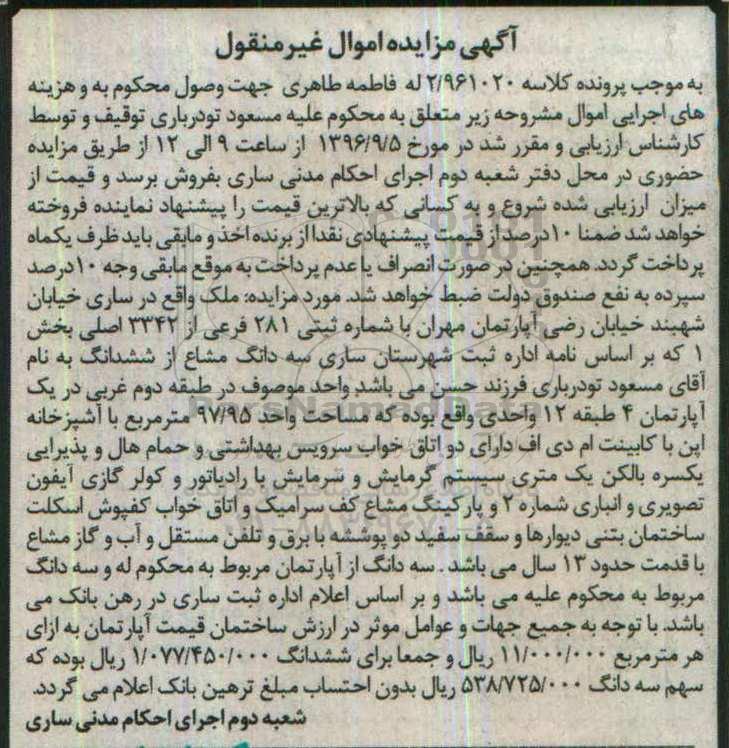 آگهی مزایده اموال غیرمنقول
به موجب پرونده کلاسه ۲/۹۶۱۰۲۰ له فاطمه طاهری جهت وصول محکوم به و هزینه
های اجرایی اموال مشروحه زیر متعلق به محکوم علیه مسعود تودرباری توقیف و توسط
کارشناس ارزیابی و مقرر شد در مورخ ۱۳۹۶/۹/۵ از ساعت ۹ الی ۱۲ از طریق مزایده
حضوری در محل دفتر شعبه دوم اجرای احکام مدنی ساری بفروش برسد و قیمت از
میزان ارزیابی شده شروع و به کسانی که بالاترین قیمت را پیشنهاد نماینده فروخته
خواهد شد ضمنا ۱۰درصد از قیمت پیشنهادی نقدا از برنده اخذ و مابقی باید ظرف یکماه
پرداخت گردد. همچنین در صورت انصراف یا عدم پرداخت به موقع مابقی وجه ۱۰درصد
سپرده به نفع صندوق دولت ضبط خواهد شد. مورد مزایده: ملک واقع در ساری خیابان
شهبند خیابان رضی آپارتمان مهران با شماره ثبتی ۲۸۱ فرعی از ۳۳۴۲ اصلی بخش
۱ که بر اساس نامه اداره ثبت شهرستان ساری سه دانگ مشاع از ششدانگ به نام
آقای مسعود تودرباری فرزند حسن می باشد واحد موصوف در طبقه دوم غربی در یک
آپارتمان ۴ طبقه ۱۲ واحدی واقع بوده که مساحت واحد ۹۷/۹۵ مترمربع با آشپزخانه
اپن با کابینت ام دی اف دارای دو اتاق خواب سرویس بهداشتی و حمام هال و پذیرایی
یکسره بالکن یک متری سیستم گرمایش و سرمایش با رادیاتور و کولر گازی آیفون
تصویری و انباری شماره ۲ و پارکینگ مشاع کف سرامیک و اتاق خواب کفپوش اسکلت
ساختمان بتنی دیوارها و سقف سفید دو پوششه با برق و تلفن مستقل و آب و گاز مشاع
با قدمت حدود ۱۳ سال می باشد . سه دانگ از آپارتمان مربوط به محکوم له و سه دانگ
مربوط به محکوم علیه می باشد و بر اساس اعلام اداره ثبت ساری در رهن بانک می
باشد. با توجه به جمیع جهات و عوامل موثر در ارزش ساختمان قیمت آپارتمان به ازای
هر مترمربع ۱۱/۰۰۰/۰۰۰ ریال و جمعا برای ششدانگ ۱/۰۷۷/۴۵۰/۰۰۰ ریال بوده که
سهم سه دانگ ۵۳۸/۷۲۵/۰۰۰ ریال بدون احتساب مبلغ ترهین بانک اعلام می گردد.
شعبه دوم اجرای احکام مدنی ساری
ParsNamadData